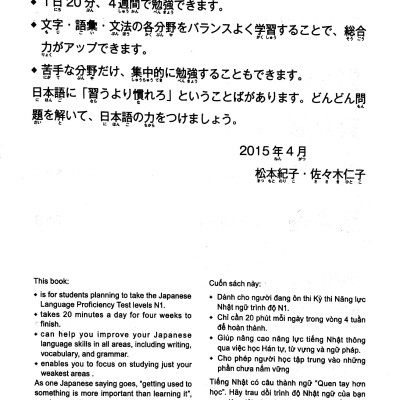 ◆ 1日20分、4週間で勉強できます。
◆ 文字・語彙・文法の各分野をバランスよく学習することで、総合
力がアップできます。
◆ 苦手な分野だけ、集中的に勉強することもできます。
日本語に「習うより慣れろ」ということばがあります。どんどん問
題を解いて、日本語の力をつけましょう。
2015年4月
松本紀子・佐々木仁子
This book:
◆ is for students planning to take the Japanese
Language Proficiency Test levels N1.
◆ takes 20 minutes a day for four weeks to
finish.
◆ can help you improve your Japanese
language skills in all areas, including writing,
vocabulary, and grammar.
◆ enables you to focus on studying just your
weakest areas .
As one Japanese saying goes, "getting used to
something is more important than learning it",
Cuốn sách này:
◆ Dành cho người đang ôn thi Kỳ thi Năng lực
Nhật ngữ trình độ N1.
◆ Chỉ cần 20 phút mỗi ngày trong vòng 4 tuần
để hoàn thành.
◆ Giúp nâng cao năng lực tiếng Nhật thông
qua việc học Hán tự, từ vựng và ngữ pháp.
◆ Cho phép người học tập trung vào những
phần chưa nắm vững
Tiếng Nhật có câu thành ngữ "Quen tay hơn
học". Hãy trau dồi trình độ Nhật ngữ của